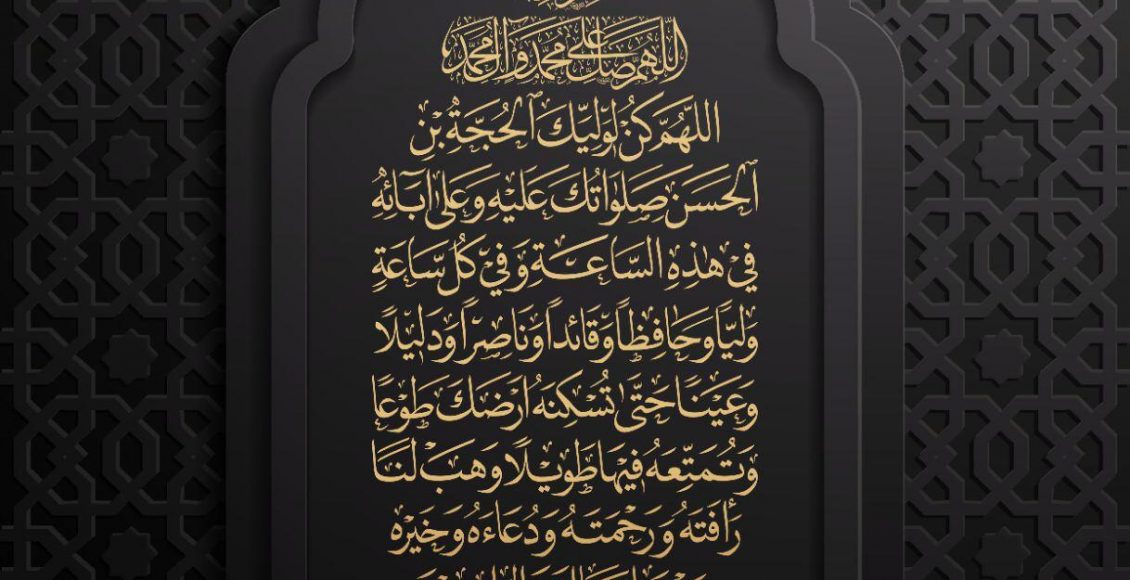 اللّهُمَّ صَلِّ عَلَى مُحَمَّد وَآلِ مُحَمَّد
اللّهُمَّ كُنْ لِوَلِيِّكَ ٱلْحُجَّةِ بْنِ
ٱلْحَسَنِ صَلَوٰاتُكَ عَلَيْهِ وَعَلىٰ آبَآئِهِ
في هٰذِهِ السَّاعَةِ وَفي كُلِّ سَاعَةٍ
وَلِيّاً وَحَافِظاً وَقَائِداً وَنَاصِراً وَدَلِيلًا
وَعَيْناً حَتّىٰ تُسْكِنَهُ أَرْضَكَ طَوْعاً
وَتُمَتِّعَهُ فِيهَا طَوِيلًا وَهَبْ لَنَا
رَأْفَتَهُ وَرَحْمَتَهُ وَدُعَاءَهُ وَخَيْرَهُ